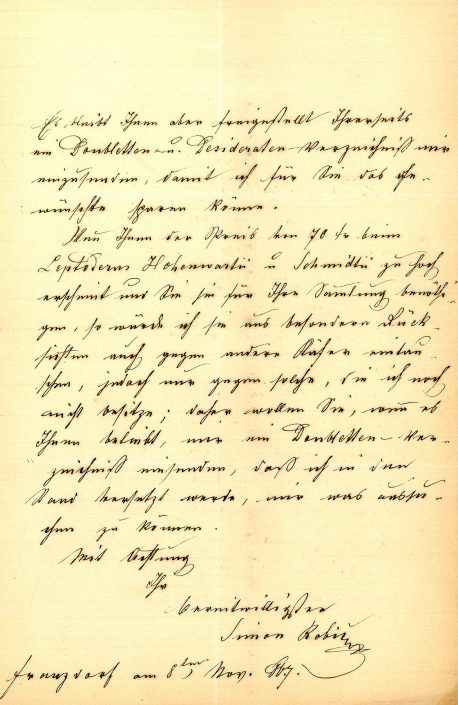 Es bleibt Ihnen aber freigestellt Ihrerseits
ein Doubletten- u. Desideraten-Verzeichniß mir
einzusenden, damit ich für Sie das ge-
wünschte sparen könne.
Wenn Ihnen der Preis von 70 kr beim
Leptoderus Hohenwartii u Schmidtii zu hoch
erscheint und Sie sie für Ihre Samlung benöthi-
gen, so würde ich sie aus besondern Rück-
sichten auch gegen andere Käfer eintau-
schen, jedoch nur gegen solche, die ich noch
nicht besitze; daher wollen Sie, wenn es
Ihnen beliebt, mir ein Doubletten-Ver-
zeichniß einsenden, daß ich in den
Stand versetzt werde, mir was aussu-
chen zu können.
Mit Achtung
Ihr
bereitwilligster
Simon Robič
Franzdorf am 8ten Nov. 867.